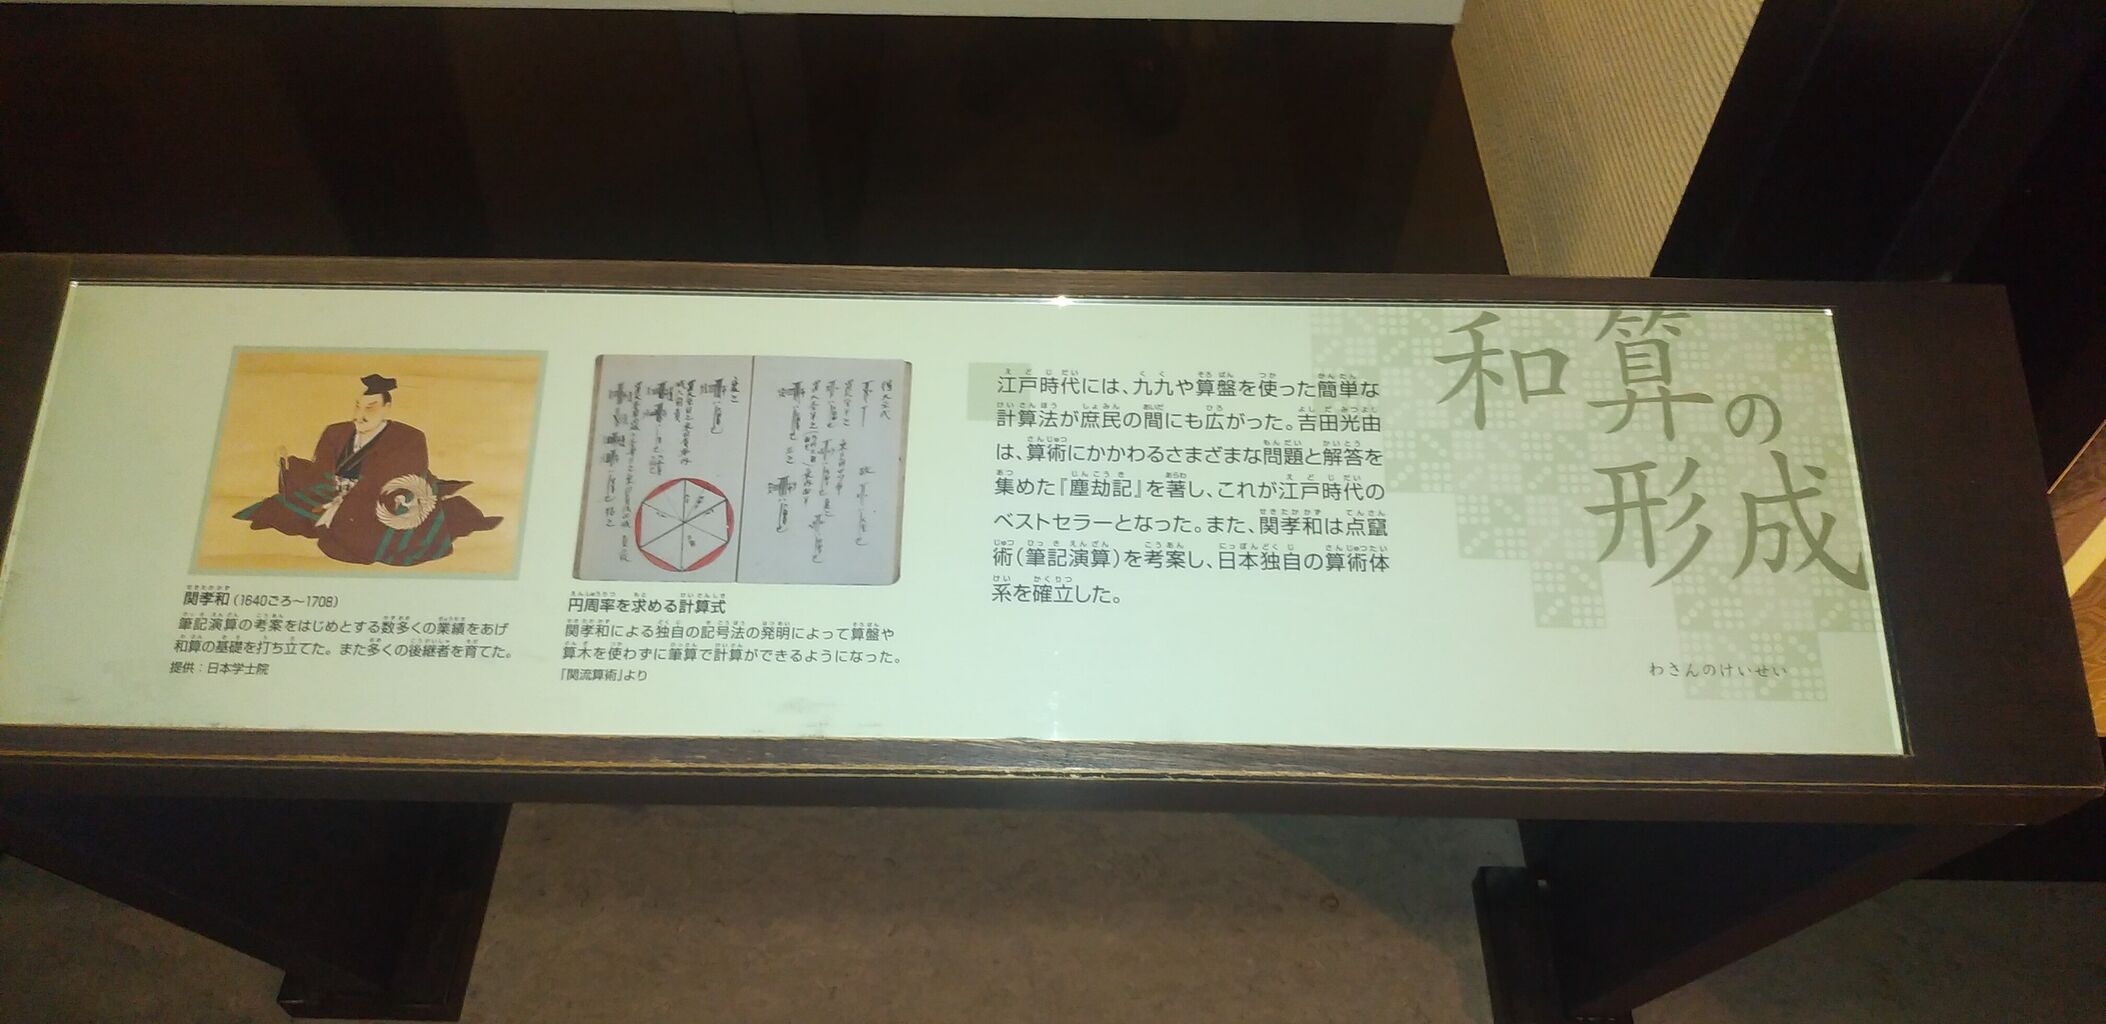 和算の
形成
わさんのけいせい
江戸時代には、九九や算盤を使った簡単な
計算法が庶民の間にも広がった。吉田光由
は、算術にかかわるさまざまな問題と解答を
集めた『塵劫記』を著し、これが江戸時代の
ベストセラーとなった。また、関孝和は点竄
術(筆記演算)を考案し、日本独自の算術体
系を確立した。
円周率を求める計算式
関孝和による独自の記号法の発明によって算盤や
算木を使わずに筆算で計算ができるようになった。
「関流算術」より
関孝和(1640ごろ〜1708)
筆記演算の考案をはじめとする数多くの業績をあげ
和算の基礎を打ち立てた。また多くの後継者を育てた。
提供:日本学士院